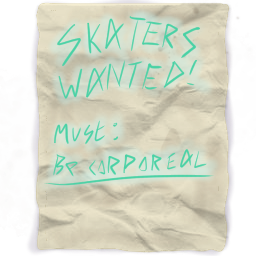 SKATERS
WANTED!
MUST:
BE CORPOREAL